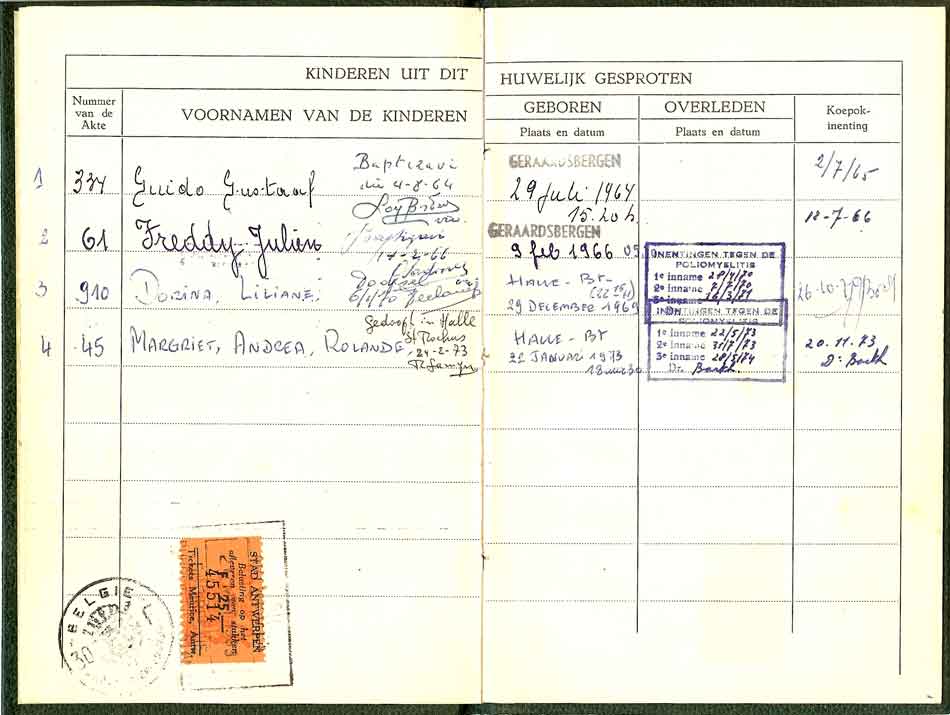 KINDEREN UIT DIT HUWELIJK GESPROTEN
Nummer van de Akte
VOORNAMEN VAN DE KINDEREN
GEBOREN
Plaats en datum
OVERLEDEN
Plaats en datum
Koepok-inenting
1 334 Guido Gustaaf
die 4-8-64
GERAARDSBERGEN
29 Juli 1964
15.20 h
2/7/65
2 61 Freddy Julien
17-2-66
GERAARDSBERGEN
9 feb 1966
18-7-66
3 910 DORINA, LILIANE,
6/1/70
HALLE - BT
29 DECEMBER 1969
INENTINGEN TEGEN DE
POLIOMYELITIS
1e inname 28/4/70
2e inname
3e inname 26/3/71
4 45 MARGRIET, ANDREA, ROLANDE
Gedoopt in Halle
St Rochus
24-2-73
HALLE - BT
22 JANUARI 1973
INENTINGEN TEGEN DE
POLIOMYELITIS
1e inname 22/5/73
2e inname 31/7/73
3e inname 28/5/74
Dr.
20.11.73
BELGIE
30
STAD ANTWERPEN
Belasting op het
afleveren van stukken
F 25
45514